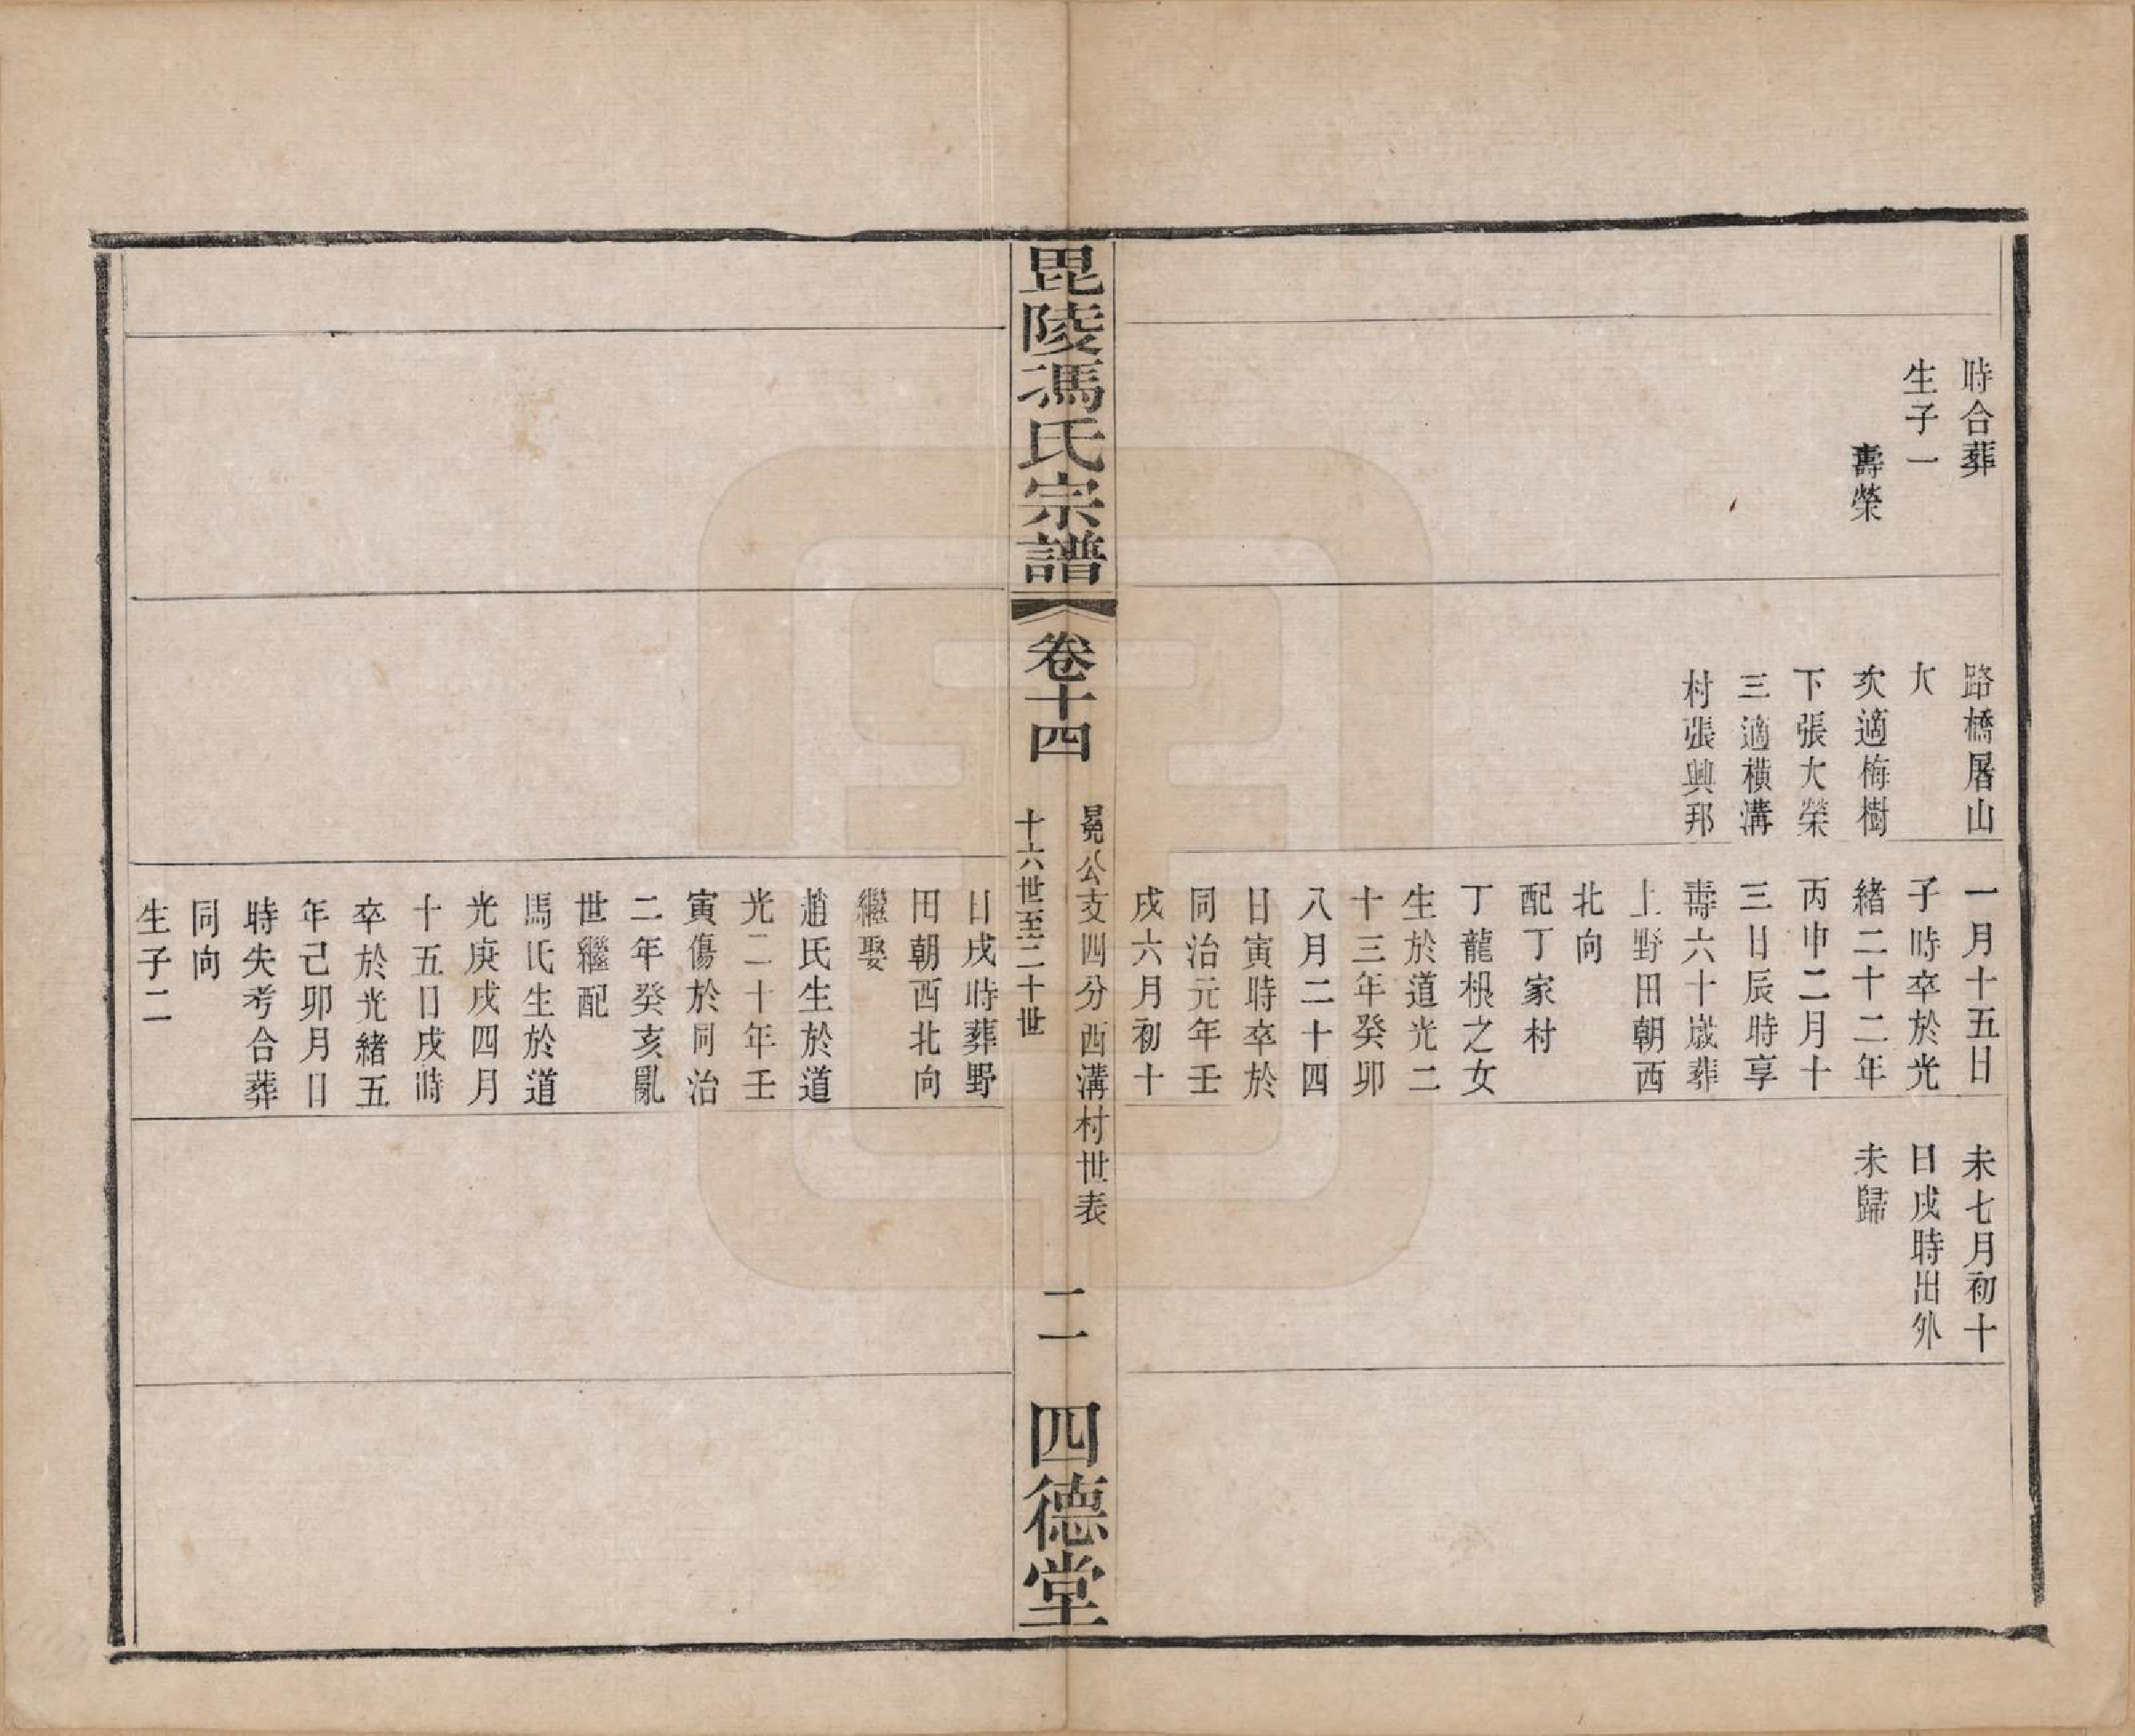 時合葬
生子一
壽榮
路橋屠山
大
次適梅樹
下張大榮
三適橫溝
村張興邦
一月十五日
子時卒於光
緒二十二年
丙申二月十
三日辰時享
壽六十歲葬
上野田朝西
北向
配丁家村
丁龍根之女
生於道光二
十三年癸卯
八月二十四
日寅時卒於
同治元年壬
戌六月初十
未七月初十
日戌時出外
未歸
毘陵馮氏宗譜
卷十四
冕公支四分西溝村世表
十六世至二十世
二
四德堂
日戌時葬野
田朝西北向
繼娶
趙氏生於道
光二十年壬
寅傷於同治
二年癸亥亂
世繼配
馬氏生於道
光庚戌四月
十五日戌時
卒於光緒五
年己卯月日
時失考合葬
同向
生子二